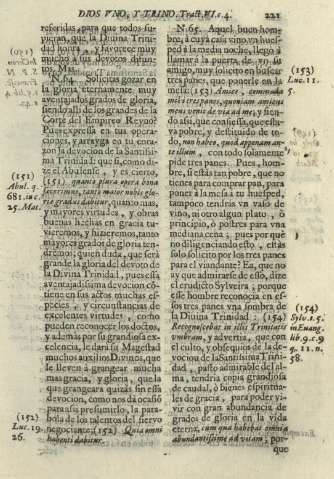 DIOS VNO, Y TRINO. Tract. VI. c. 4. 221
referidas, para que todos supieran, que la Divina Trinidad
mucho a sus devotos
N. 64. Solicitas gozar en
la gloria eternamente muy
aventajados grados de gloria,
siendo allí de los grandes de la
Corte del Empireo Reyno?
Pues expressa en tus operaciones,
y arrayga en tu corazon
la devocion de la Santissima
Trinidad: que si, como dize
el Abulense, y es cierto,
(151) quanto plura opera bona
fecerimus, tanto maior nobis gloriæ
gradus dabitur, quanto mas,
y mayores virtudes, y obras
buenas hechas en gracia tuvieremos,
y hizieremos, tanto
mayores grados de gloria tendremos;
quien duda, que será
grande la gloria del devoto de
la Divina Trinidad, pues essa
aventajadissima devocion contiene
en sus actos muchas especies,
y circunstancias de
excelentes virtudes, como
pueden reconocer los doctos,
y además por su grandiosa excelencia,
le dará su Magestad
muchos auxilios Divinos, que
le lleven à grangear mucha
mas gracia, y gloria, que la
que grangeara quizás sin essa
devocion, como nos dá ocasió
para assi presumirlo, la parabola
de los talentos del siervo
negociante: (152) Quia omni
habenti dabitur.
(151)
Abul. q.
681. in c.
25. Mat.
(152)
Luc. 19.
26.
N. 65. Aquel buen hombre,
à cuya casa vino un huesped
à la media noche, llegó à
llamar à la puerta de su
amigo, muy solicito en buscar
tres panes, que ponerle en la
mesa: (153) Amice, commoda
mihi tres panes, quoniam amicus
meus venit de via ad me, y siendo
assi, que confiessa, que estava
pobre, y destituido de todo,
non habeo, quod apponam ante
illum, con todo solamente
pide tres panes. Pues, hombre,
si estás tan pobre, que no
tienes para comprar pan, para
poner à la mesa à tu huesped,
tampoco tendrás vn vaso de
vino, ni otro algun plato, ò
principio, ò postres para vna
mediana cena; pues por què
no diligenciando esto, estás
solo solicito por los tres panes
para el viandante? Ea, que no
ay que admirarse de esso, dize
el erudicto Sylveira; porque
esse hombre reconocia en essos
tres panes vna sombra de
la Divina Trinidad: (154)
Recognoscebat in illis Trinitatis
umbram, y advertia, que con
el culto, y obsequios de la devocion
de la Santissima Trinidad,
pasto admirable del alma,
tendria copia grandiosa
de caudal, ò bienes espirituales
de gracia, para poder vivir
con gran abundancia de
grados de gloria en la vida
eterna, cum qua habebat omnia
abundantissime ad vitam; porque
(153)
Luc. 11.
5.
(154)
Sylv. t. 5.
in Euang.
lib. 9. c. 9
q. 11. n.
58.